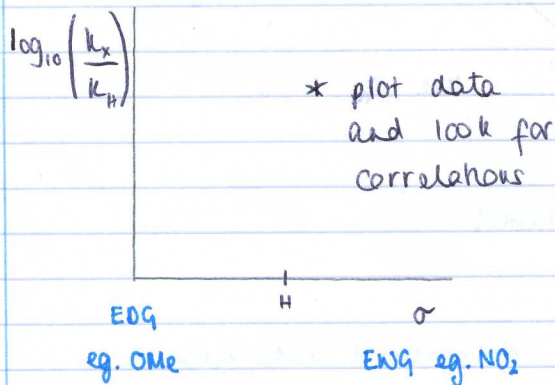 log₁₀ (kₓ/k_H)
* plot data
and look for
correlations
H
σ
EDG
eg. OMe
EWG eg. NO₂